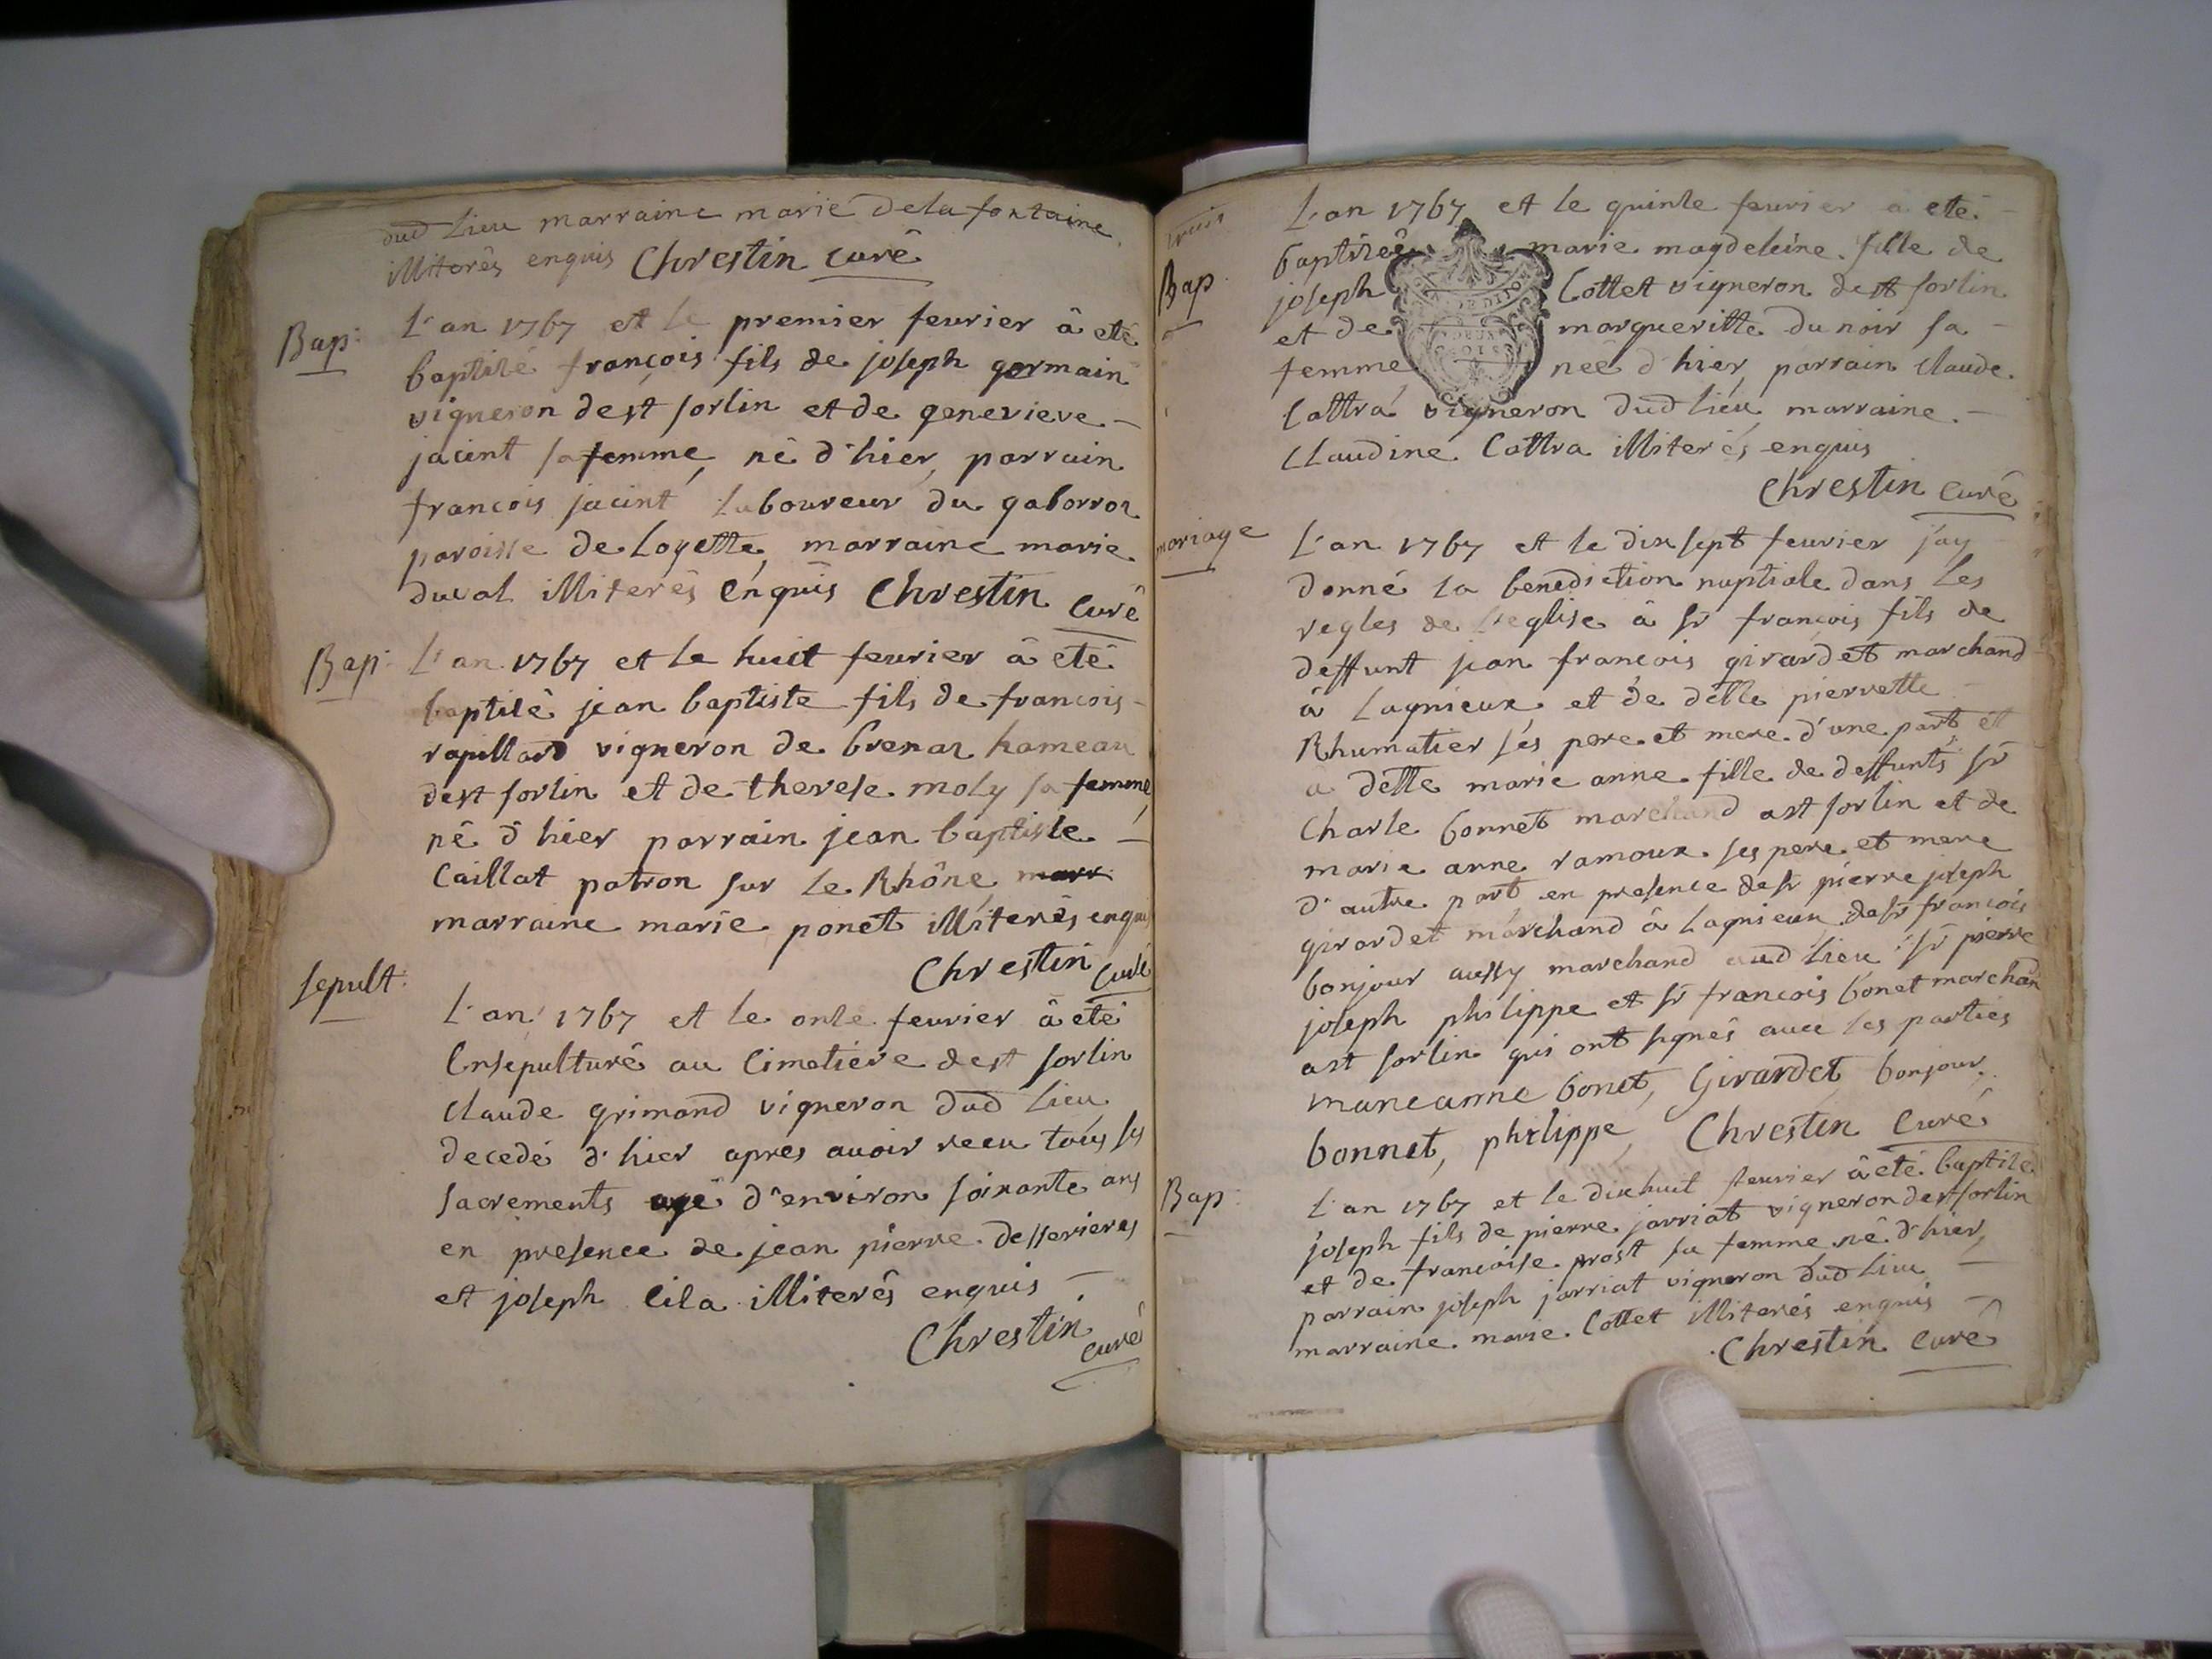 dud Lieu marraine marie dela fontaine
illiterés enquis Chrestin curé
Bap:
L'an 1767 et le premier feurier â eté
baptisé françois fils de joseph germain
vigneron de st sorlin et de genevieve
jacint sa femme, né d'hier, parrain
francois jacint laboureur du gaborron
paroisse de Loyette, marraine marie
duval illiterés enquis Chrestin curé
Bap:
L'an 1767 et le huit feurier â eté
baptisé jean baptiste fils de francois
rapillard vigneron de brenaz hameau
de st sorlin et de therese moly sa femme,
né d'hier parrain jean baptiste
Caillat patron sur le Rhône, marr
marraine marie ponet illiterés enquis
Chrestin curé
sepult:
L'an 1767 et le onse feurier â eté
Ensepulturé au Cimetiére de st sorlin
Claude grimand vigneron dud Lieu
decedé d'hier apres auoir recu tous ses
sacrements agé d'environ soixante ans
en presence de jean pierre desserieres
et joseph lila illiterés enquis
Chrestin curé
Bap
L'an 1767 et le quinse feurier a eté
baptiseé marie magdeleine fille de
joseph Cottet vigneron de st sorlin
et de margueritte du noir sa
femme neé d'hier, parrain Claude
Cottra vigneron dud lieu, marraine
Claudine Cottra illiterés enquis
Chrestin curé
mariage
L'an 1767 et le dix sept feurier j'ay
donné la benediction nuptiale dans les
regles de l'eglise â sr françois fils de
deffunt jean francois girardet marchand
â Lagnieux et de delle pierrette
Rhumatier ses pere et mere d'une part et
a delle marie anne fille de deffunts sr
Charle bonnet marchand a st sorlin et de
marie anne ramoux ses pere et mere
d'autre part en presence de sr pierre joseph
girardet marchand â Lagnieux de sr francois
bonjour aussy marchand aud lieu sr pierre
joseph philippe et sr francois bonet marchan
a st sorlin qui ont signés auec les parties
marieanne bonet, Girardet bonjour,
bonnet, philippe, Chrestin Curé
Bap:
L'an 1767 et le dix huit feurier â eté baptisé
joseph fils de pierre jarriat vigneron de st sorlin
et de francoise prost sa femme né d'hier,
parrain joseph jarriat vigneron dud Lieu
marraine marie Cottet illiterés enquis
Chrestin Curé